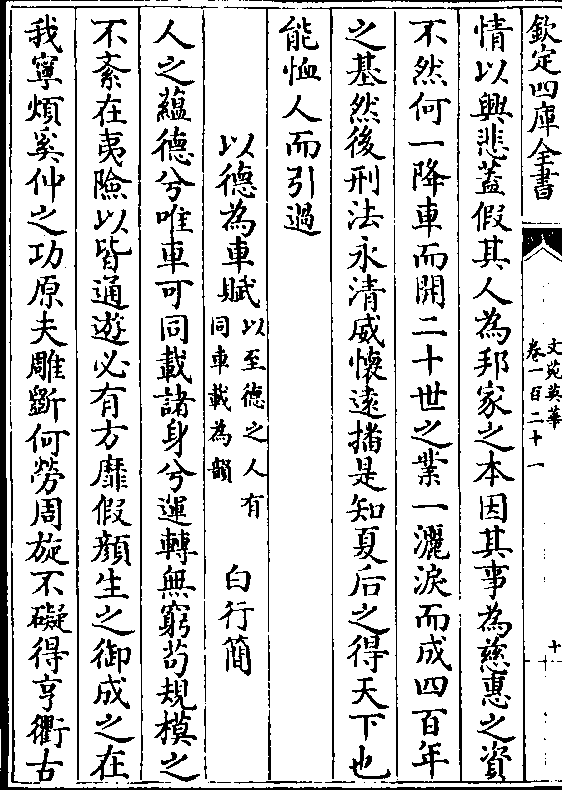 欽定四庫全書
文苑英華
卷一百二十一
十
情以興悲蓋假其人為邦家之本因其事為慈惠之資
不然何一降車而開二十世之業一灑淚而成四百年
之基然後刑法永清威懷遠播是知夏后之得天下也
能恤人而引過
以德為車賦以至德之人有同車載為韻 白行簡
人之蘊德兮唯車可同載諸身兮運轉無窮茍規模之
不紊在夷險以皆通遊必有方靡假顔生之御成之在
我寧煩奚仲之功原夫雕斵何勞周旋不礙得亨衢古